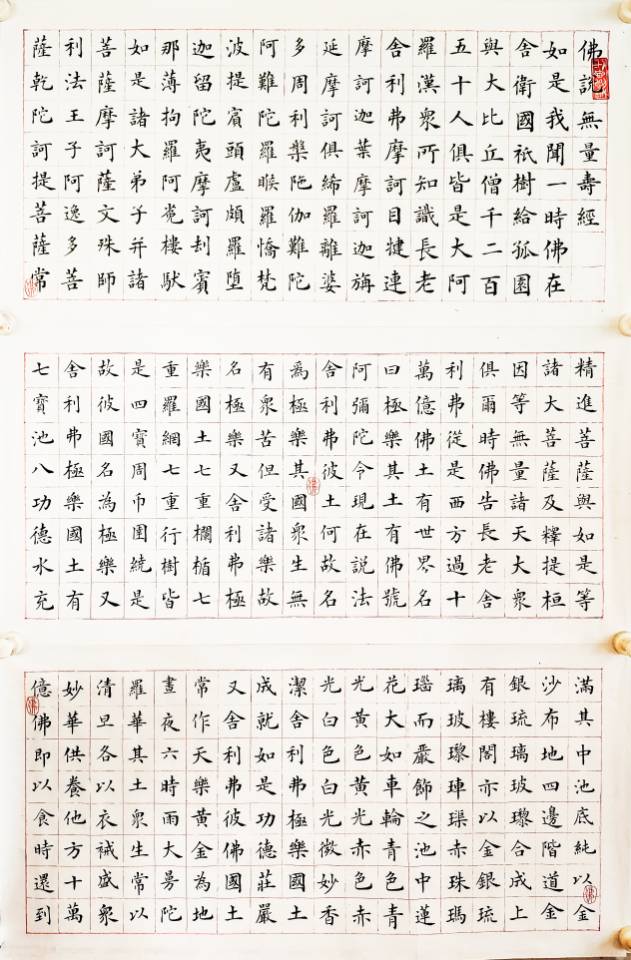 佛說無量壽經
如是我聞一時佛在
舍衛國祇樹給孤園
與大比丘僧千二百
五十人俱皆是大阿
羅漢眾所知識長老
舍利弗摩訶目犍連
摩訶迦葉摩訶迦旃
延摩訶俱絺羅離婆
多周利槃陁伽難陀
阿難陀羅睺羅憍梵
波提賓頭盧頗羅墮
迦留陀夷摩訶劫賓
那薄拘羅阿㝹樓馱
如是諸大弟子并諸
菩薩摩訶薩文殊師
利法王子阿逸多菩
薩乾陀訶提菩薩常
精進菩薩與如是等
諸大菩薩及釋提桓
因等無量諸天大眾
俱爾時佛告長老舍
利弗從是西方過十
萬億佛土有世界名
曰極樂其土有佛號
阿彌陀今現在說法
舍利弗彼土何故名
爲極樂其國眾生無
有眾苦但受諸樂故
名極樂又舍利弗極
樂國土七重欄楯七
重羅網七重行樹皆
是四寶周帀圍繞是
故彼國名為極樂又
舍利弗極樂國土有
七寶池八功德水充
滿其中池底純以金
沙布地四邊階道金
銀琉璃玻瓈合成上
有樓閣亦以金銀琉
璃玻瓈硨磲赤珠瑪
瑙而嚴飾之池中蓮
花大如車輪青色青
光黃色黃光赤色赤
光白色白光微妙香
潔舍利弗極樂國土
成就如是功德莊嚴
又舍利弗彼佛國土
常作天樂黃金為地
晝夜六時雨大曼陀
羅華其土眾生常以
清旦各以衣祴盛眾
妙華供養他方十萬
億佛即以食時還到